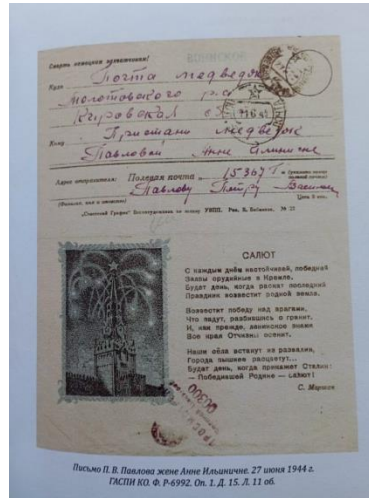 Смерть немецким захватчикам!
ВОИНСКОЕ
Куда Почта Медведок
Молотовского р-а
Кировская обл
Кому Пристань Медведок
Павловой Анне Илиничне
Адрес отправителя: Полевая почта 15367 Г
Павлову Петру
(Фамилия, имя и отчество)
Цена 5 коп.
САЛЮТ
С каждым днём настойчивей, победней
Залпы орудийные в Кремле.
Будет день, когда раскат последний
Праздник возвестит родной земле.
Возвестит победу над врагами,
Что падут, разбившись о гранит.
И, как прежде, ленинское знамя
Все края Отчизны осенит.
Наши сёла встанут из развалин,
Города пышнее расцветут...
Будет день, когда прикажет Сталин:
— Победившей Родине — салют!
С. Маршак
Письмо П. В. Павлова жене Анне Ильиничне. 27 июня 1944 г.
ГАСПИ КО. Ф. Р-6992. Оп. 1. Д. 15. Л. 11 об.